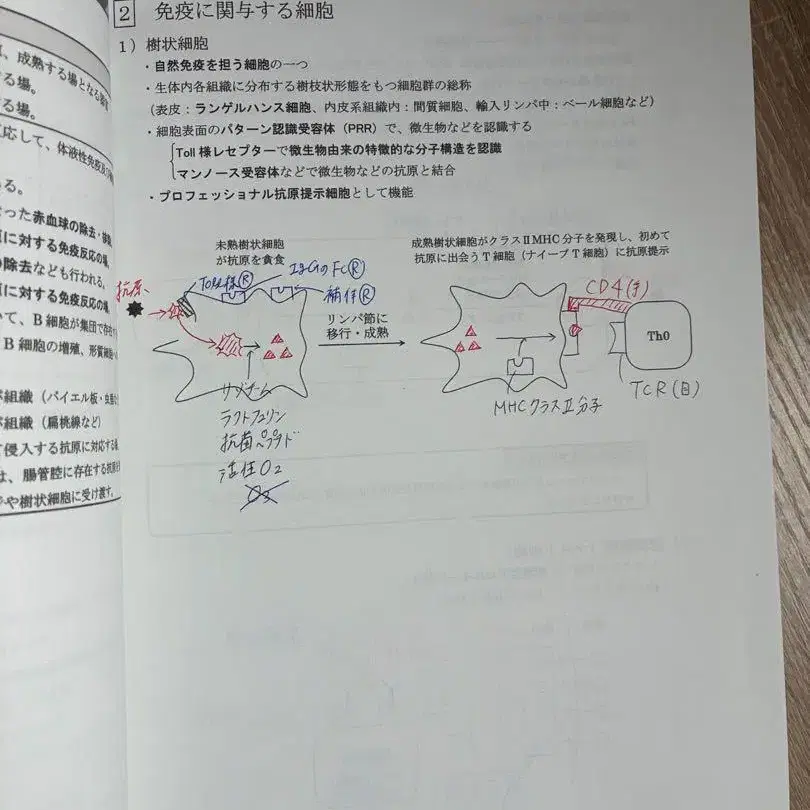 成熟する場となる
る場。
る場。
応して、体液性免疫
る。
った赤血球の除去・
に対する免疫反応の場
除去なども行われる。
に対する免疫反応の場
いて、B細胞が集団で存在
B細胞の増殖、形質細胞
組織（パイエル板・虫垂
組織（扁桃腺など）
侵入する抗原に対応する
は、腸管腔に存在する抗原
や樹状細胞に受け渡す。
2 免疫に関与する細胞
1）樹状細胞
・自然免疫を担う細胞の一つ
・生体内各組織に分布する樹枝状形態をもつ細胞群の総称
（表皮：ランゲルハンス細胞、内皮系組織内：間質細胞、輸入リンパ中：ベール細胞など）
・細胞表面のパターン認識受容体（PRR）で、微生物などを認識する
Toll 様レセプターで微生物由来の特徴的な分子構造を認識
マンノース受容体などで微生物などの抗原と結合
・プロフェッショナル抗原提示細胞として機能
未熟樹状細胞
が抗原を貪食
成熟樹状細胞がクラスⅡMHC 分子を発現し、初めて
抗原に出会う T 細胞（ナイーブ T 細胞）に抗原提示
抗原
Toll様Ⓡ
IgGのFcⓇ
補体Ⓡ
リンパ節に
移行・成熟
CD4(手)
Th0
TCR(目)
MHCクラスⅡ分子
リゾチーム
ラクトフェリン
抗菌ペプチド
活性O2
O3